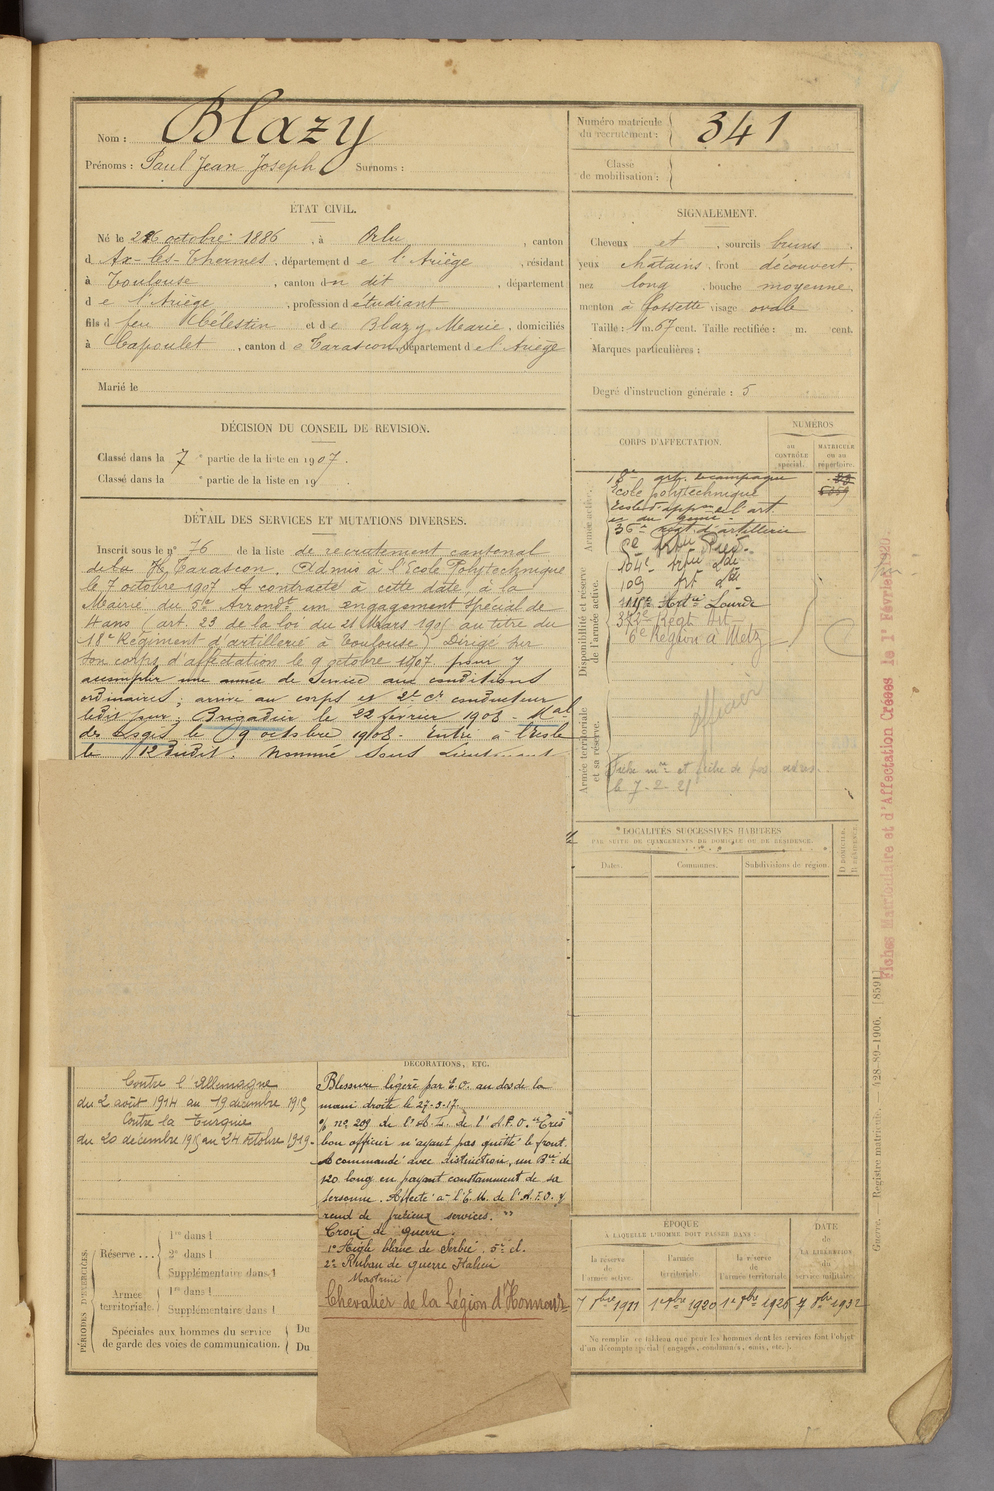 Nom : Blazy
Prénoms : Paul Jean Joseph Surnoms :
Numéro matricule du recrutement : 341
Classe de mobilisation :
ÉTAT CIVIL.
Né le 26 octobre 1886, à Orlu, canton
d Ax-les-Thermes, département de l'Ariège, résidant
à Toulouse, canton du dit, département
de l'Ariège, profession d étudiant
fils d feu Célestin et de Blazy Marie, domiciliés
à Capoulet, canton de Tarascon, département de l'Ariège
Marié le
DÉCISION DU CONSEIL DE REVISION.
Classé dans la 7e partie de la liste en 1907.
Classé dans la e partie de la liste en 19
DÉTAIL DES SERVICES ET MUTATIONS DIVERSES.
Inscrit sous le no 76 de la liste de recrutement cantonal
de la Tarascon. Admis à l'École Polytechnique
le 7 octobre 1907 A contracté à cette date, à la
Mairie du 5e Arrondt un engagement spécial de
4 ans (art. 23 de la loi du 21 Mars 1905 au titre du
18e Régiment d'artillerie à Toulouse) Dirigé sur
son corps d'affectation le 9 octobre 1907 pour y
accomplir une année de service aux conditions
ordinaires; arrivé au corps et 2e cr conducteur
ledit jour; Brigadier le 22 février 1908 - Mal
des Logis le 9 octobre 1908 - Entré à l'École
le 12 dudit. Nommé Sous Lieutenant
SIGNALEMENT.
Cheveux et, sourcils bruns
yeux châtains, front découvert,
nez long, bouche moyenne,
menton à fossette visage ovale
Taille : 1 m. 67 cent. Taille rectifiée : m. cent.
Marques particulières :
Degré d'instruction générale : 5
CORPS D'AFFECTATION.
NUMÉROS
AU CONTRÔLE spécial.
MATRICULE OU AU répertoire.
Armée active.
18e art. campagne
École polytechnique
École d'appon de l'art.
et du génie.
36e régt d'artillerie
Disponibilité et réserve de l'armée active.
104e
109
Lourde
Régt Art
6e Région à Metz
Armée territoriale et sa réserve.
officier
Fiche mle et fiche de
le 7-2-21
Fiches Matriculaire et d'Affectation Créées le 1er Février 1920.
LOCALITÉS SUCCESSIVES HABITÉES
PAR SUITE DE CHANGEMENTS DE DOMICILE OU DE RÉSIDENCE.
Dates.
Communes.
Subdivisions de région.
D. DOMICILE.
R. RÉSIDENCE.
Guerre. — Registre matricule. — 428-89-1906. [8591]
DÉCORATIONS, ETC.
Contre l'Allemagne
du 2 août 1914 au 19 décembre 1915
Contre la Turquie
du 20 décembre 1915 au 24 octobre 1919.
Blessure légère par E.O. au dos de la
main droite le 27-3-17.
no 209 de l'A.L. de l'A.F.O. "Très
bon officier n'ayant pas quitté le front.
A commandé avec distinction, un Bie de
120 long en payant constamment de sa
personne. Affecté à l'E.M. de l'A.F.O. y
rend de précieux services."
Croix de guerre.
1o Aigle blanc de Serbie 5e cl.
2o Ruban de guerre Italien
Chevalier de la Légion d'Honneur
PÉRIODES D'EXERCICES.
Réserve ... 1re dans l
2e dans l
Supplémentaire dans l
Armée territoriale. 1re dans l
Supplémentaire dans l
Spéciales aux hommes du service
de garde des voies de communication. Du
Du
ÉPOQUE
À LAQUELLE L'HOMME DOIT PASSER DANS :
la réserve de l'armée active.
l'armée territoriale.
la réserve de l'armée territoriale.
DATE DE LA LIBÉRATION du service militaire.
7 8bre 1911
1er 8bre 1920
1er 8bre 1926
7 8bre 1932
Ne remplir ce tableau que pour les hommes dont les services font l'objet
d'un décompte spécial (engagés, condamnés, omis, etc.).